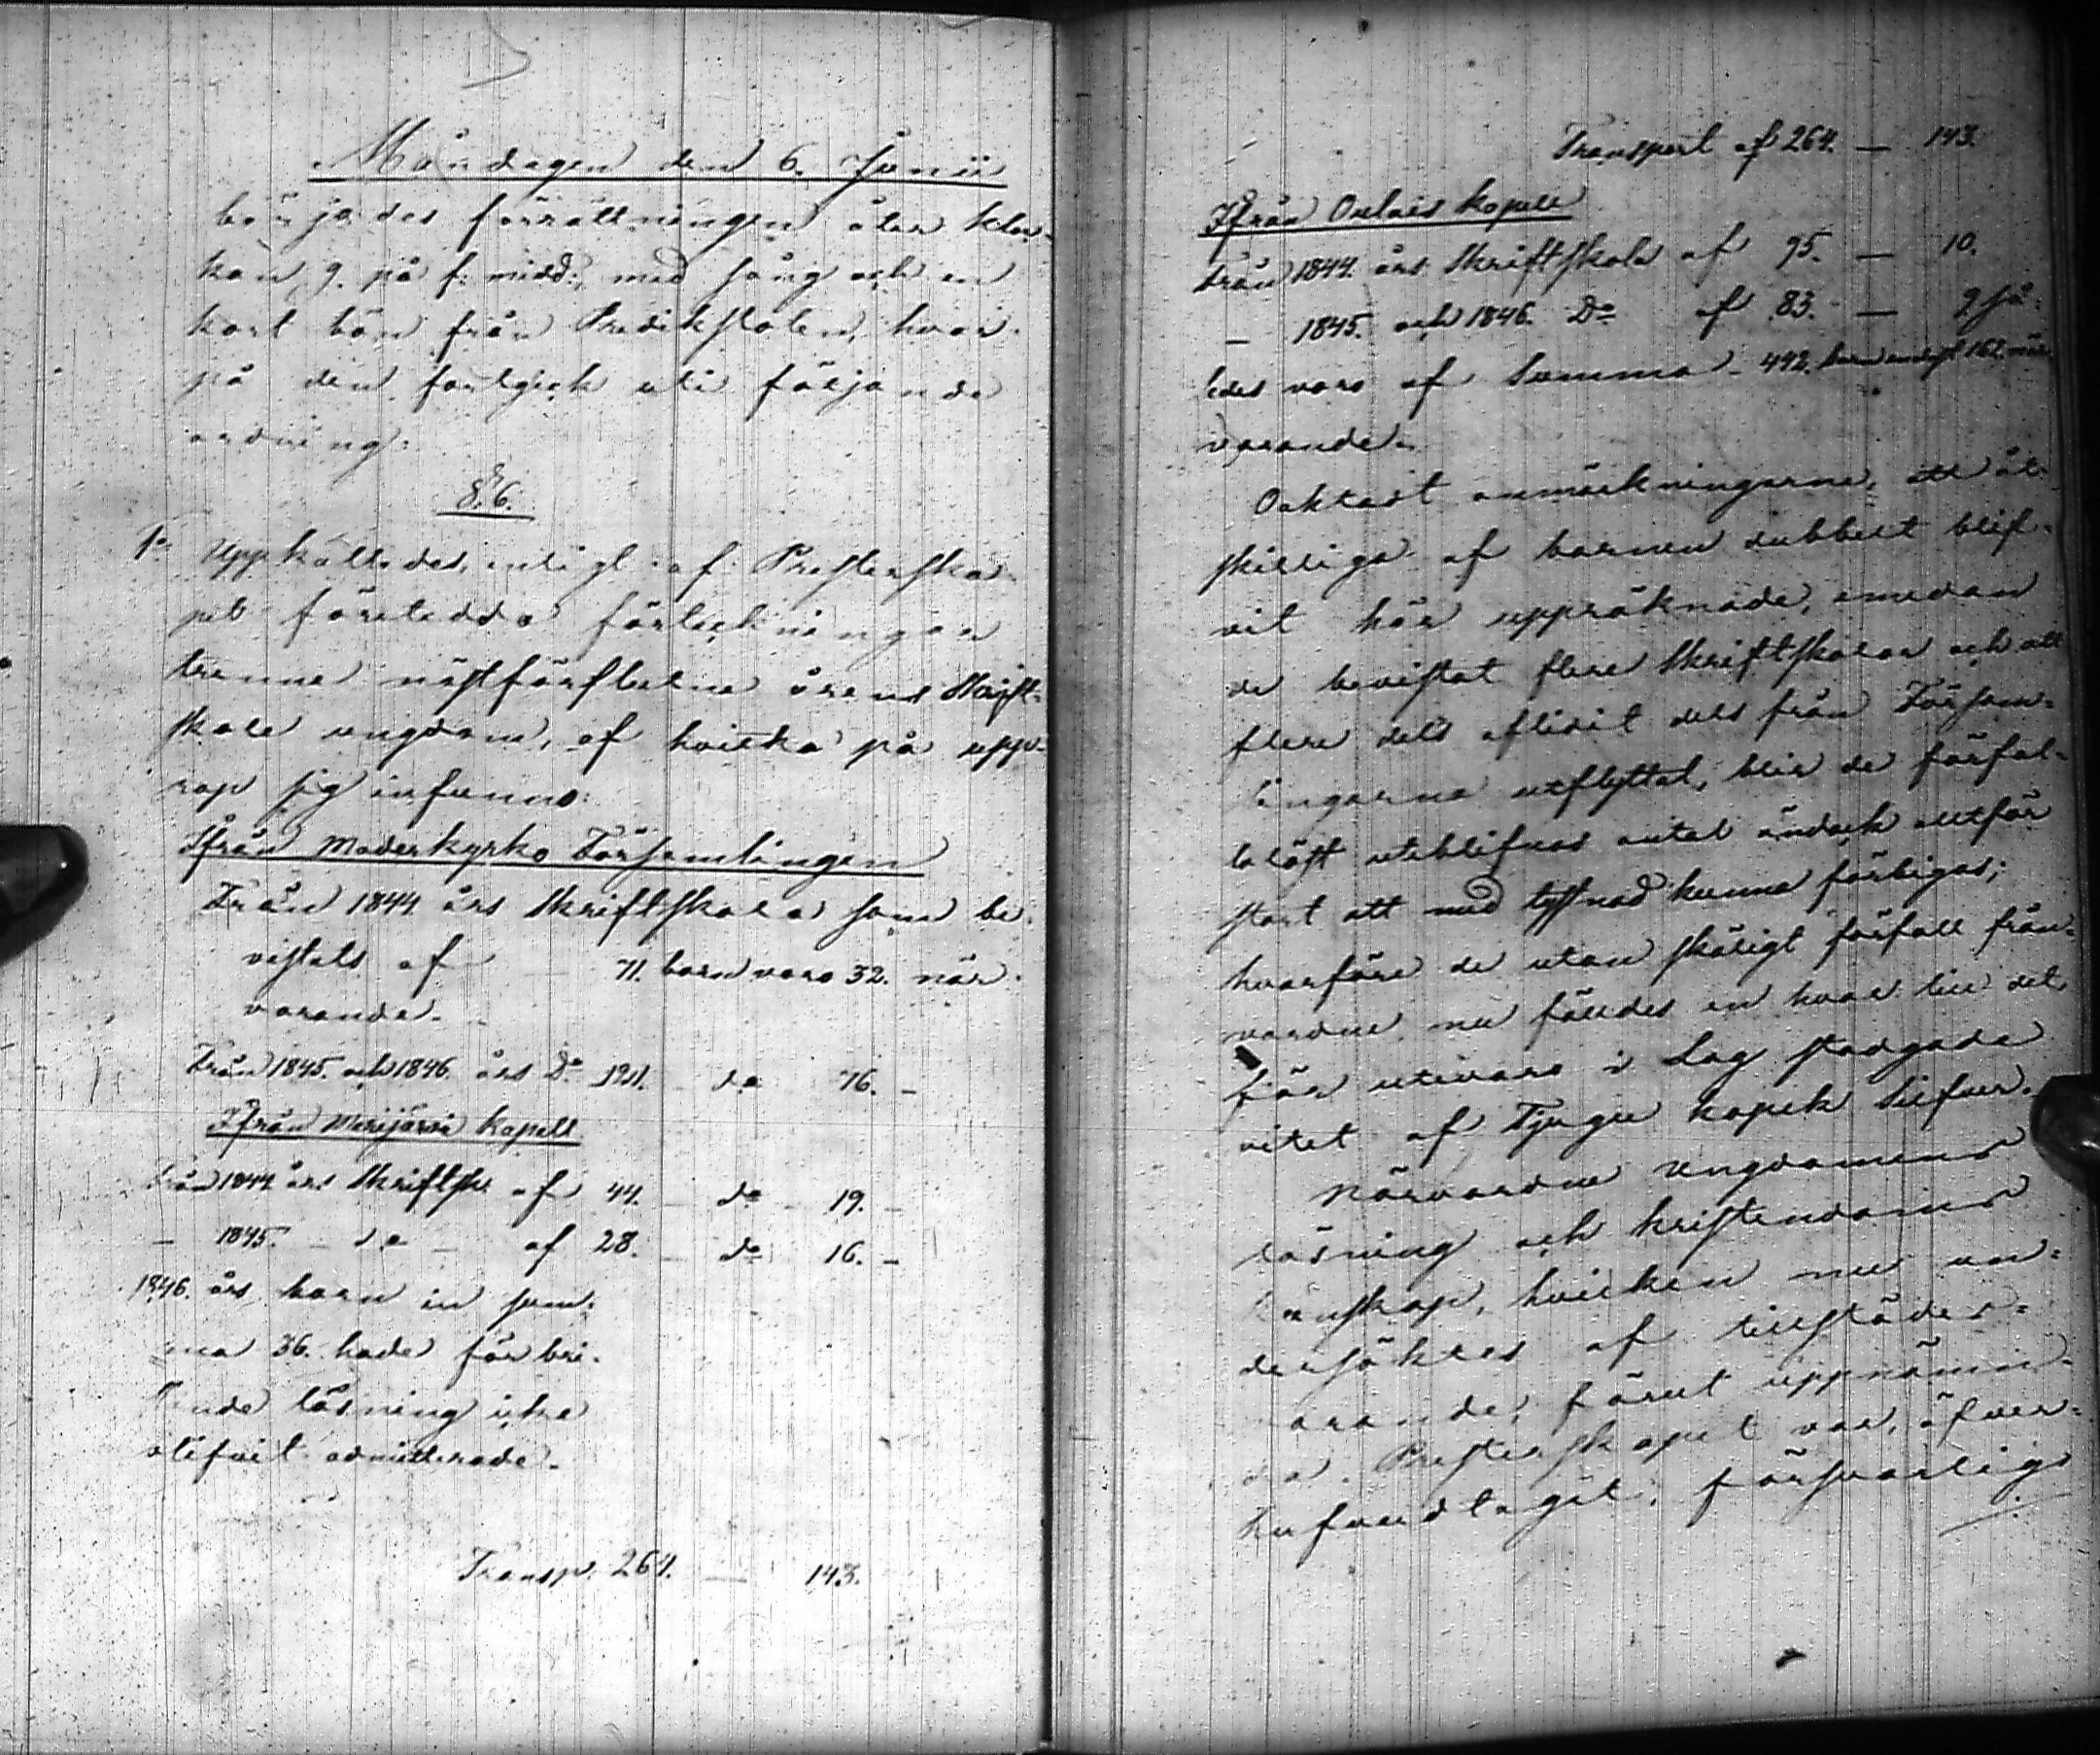 Måndagen den 6. Junii
börjades förrättningen åter klac-
kan 9. på f: midd:, med sång och en
kort bön från Predikstolen, hvar-
på den fortgick uti följande
ordning:
§. 6.
1o Uppkallades, enligt af Presterska-
pet företedda förteckningar
trenne nästförflutne årens Skrift-
skole ungdom, af hvilka på upp-
rop sig infunno:
Ifrån Moderkyrko Församlingen
Från 1844 års Skriftskola som be-
vistats af 71. barn voro 32. när-
varande.
Från 1845. och 1846. års Do 121. do 76. –
Ifrån Merijärvi Kapell
Från 1844 års Skriftsk. af 44. do 19. –
– 1845. – do – af 28. do 16. –
1846. års barn in sum-
ma 36. hade för bri-
stande läsning icke
blifvit admitterade.
Transp. 264. — 143.
Transport af 264. — 143.
Ifrån Oulais Kapell
Från 1844. års Skriftskola af 95. — 10.
– 1845. och 1846. Do af 83. — 9 så-
ledes voro af Summa 442. barn endast 162. när-
varande.
Oaktadt anmärkningarne, att åt-
skilliga af barnen dubbelt blif-
vit här uppräknade, emedan
de bevistat flere Skriftskolor och att
flere dels aflidit dels från Försam-
lingarna utflyttat, blir de förfal-
lolöst uteblifnas antal ändock alltför
stort att med tystnad kunna förbigås;
hvarföre de utan skäligt förfall från-
varande nu fälldes en hvar till det
för utevaro i Lag stadgade
vitet af Tjugu kopek Silfver.
Närvarande ungdomens
läsning och kristendoms
kunskap, hvilken nu un-
dersöktes af tillstädes-
varande, förut uppnämn-
da Presterskapet var, öfver-
hufvudtaget, försvarlig